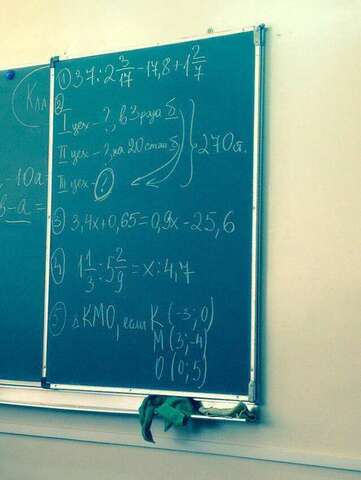 ① 37 : 2 3/17 - 17,8 + 1 2/7
②
I цех - ?, в 3 раза б.
II цех - ?, на 20 стан б. } 270 ст.
III цех - ?
③ 3,4x + 0,65 = 0,9x - 25,6
④ 1 1/3 : 5 2/9 = x : 4,7
⑤ Δ КМО, если К (-3; 0)
М (3; -4)
О (0; 5)
Кл
-10a =
в - a =